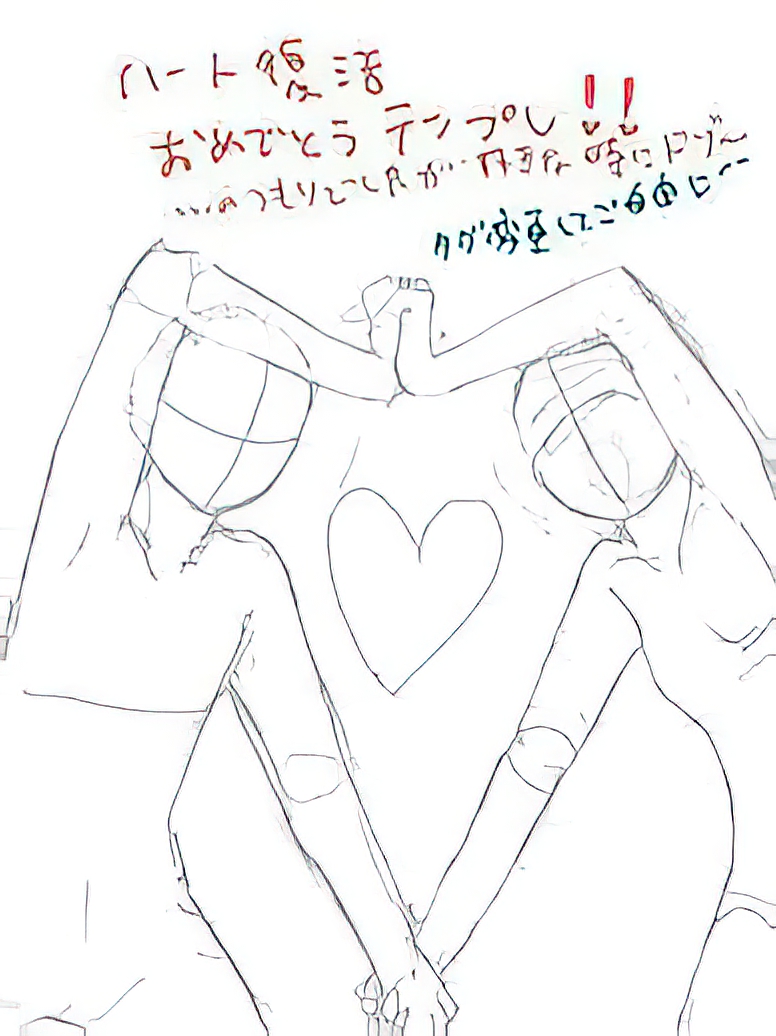 ハート復活
おめでとうテンプレ!!
...のつもりでしたが好きな時にドゾ〜
タグ変更してご自由に〜